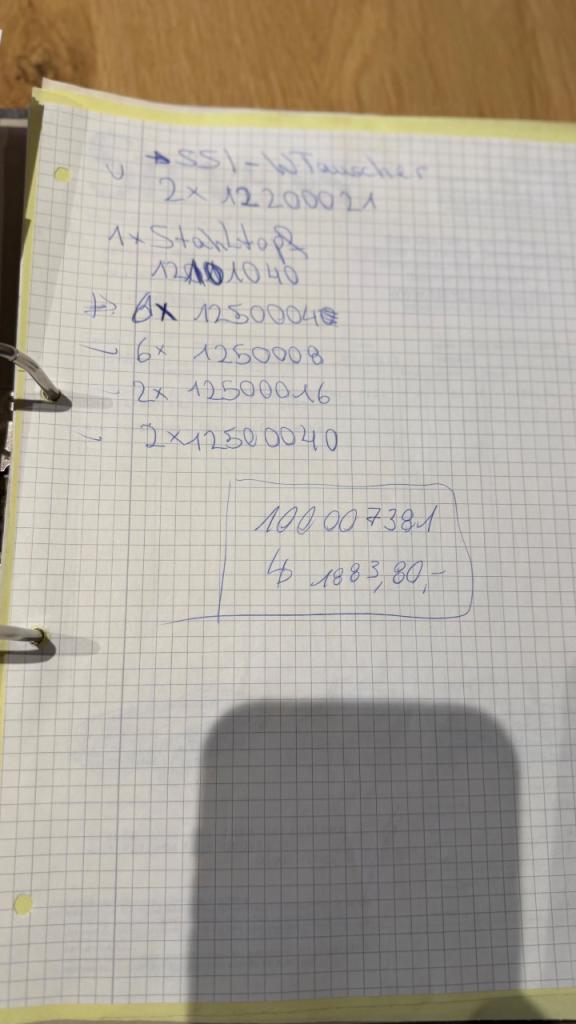 SSI-WTauscher
2x 12200021
1x Stahltopf
12101040
6x 12500040
- 6x 1250008
- 2x 12500016
- 2x12500040
100007381
↳ 1883,80,-